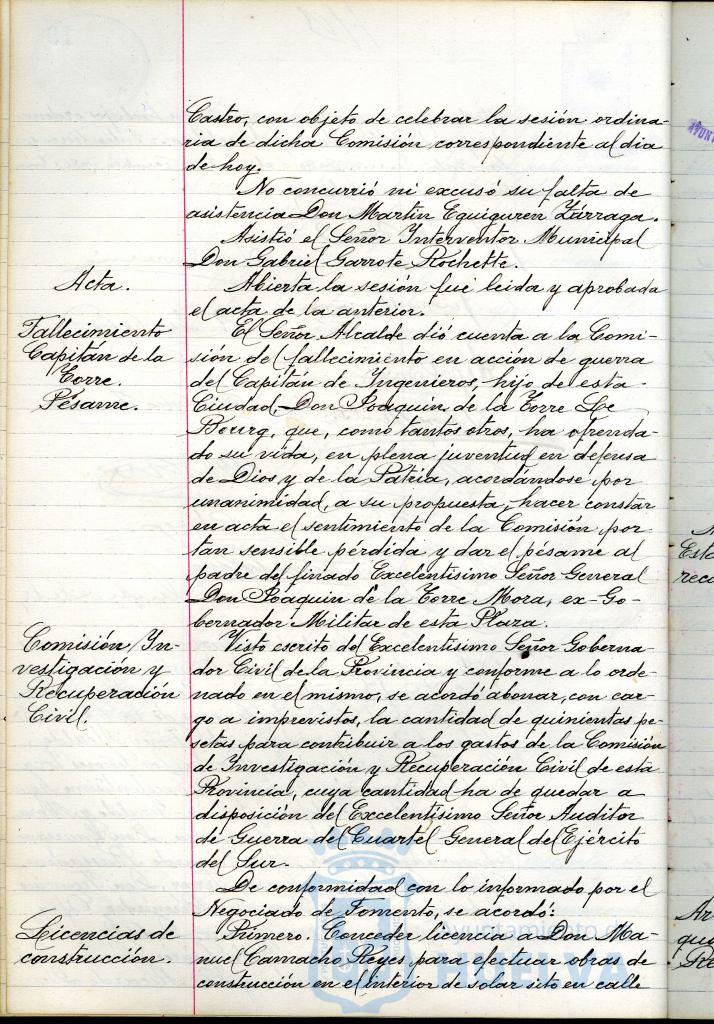 Castro, con objeto de celebrar la sesión ordina-
ria de dicha Comisión correspondiente al dia
de hoy.
No concurrió ni excusó su falta de
asistencia Don Martín Eguiguren Zárraga.
Asistió el Señor Interventor Municipal
Don Gabriel Garrote Rochette.
Acta.
Abierta la sesión fué leida y aprobada
el acta de la anterior.
Fallecimiento
Capitán de la
Torre.
Pésame.
El Señor Alcalde dió cuenta a la Comi-
sión del fallecimiento en acción de guerra
del Capitán de Ingenieros, hijo de esta
Ciudad, Don Joaquin de la Torre Le
Bourg, que, como tantos otros, ha ofrenda-
do su vida, en plena juventud en defensa
de Dios y de la Patria, acordándose por
unanimidad, a su propuesta, hacer constar
en acta el sentimiento de la Comisión por
tan sensible pérdida y dar el pésame al
padre del finado Excelentisimo Señor General
Don Joaquin de la Torre Mora, ex-Go-
bernador Militar de esta Plaza.
Comisión In-
vestigación y
Recuperación
Civil.
Visto escrito del Excelentisimo Señor Goberna-
dor Civil de la Provincia y conforme a lo orde-
nado en el mismo, se acordó abonar, con car-
go a imprevistos, la cantidad de quinientas pe-
setas para contribuir a los gastos de la Comisión
de Investigación y Recuperación Civil de esta
Provincia, cuya cantidad ha de quedar a
disposición del Excelentísimo Señor Auditor
de Guerra del Cuartel General del Ejército
del Sur.
De conformidad con lo informado por el
Negociado de Fomento, se acordó:
Licencias de
construcción.
Primero. Conceder licencia a Don Ma-
nuel Camacho Reyes para efectuar obras de
construcción en el interior de solar sito en calle
Ayuntamiento de
HUELVA